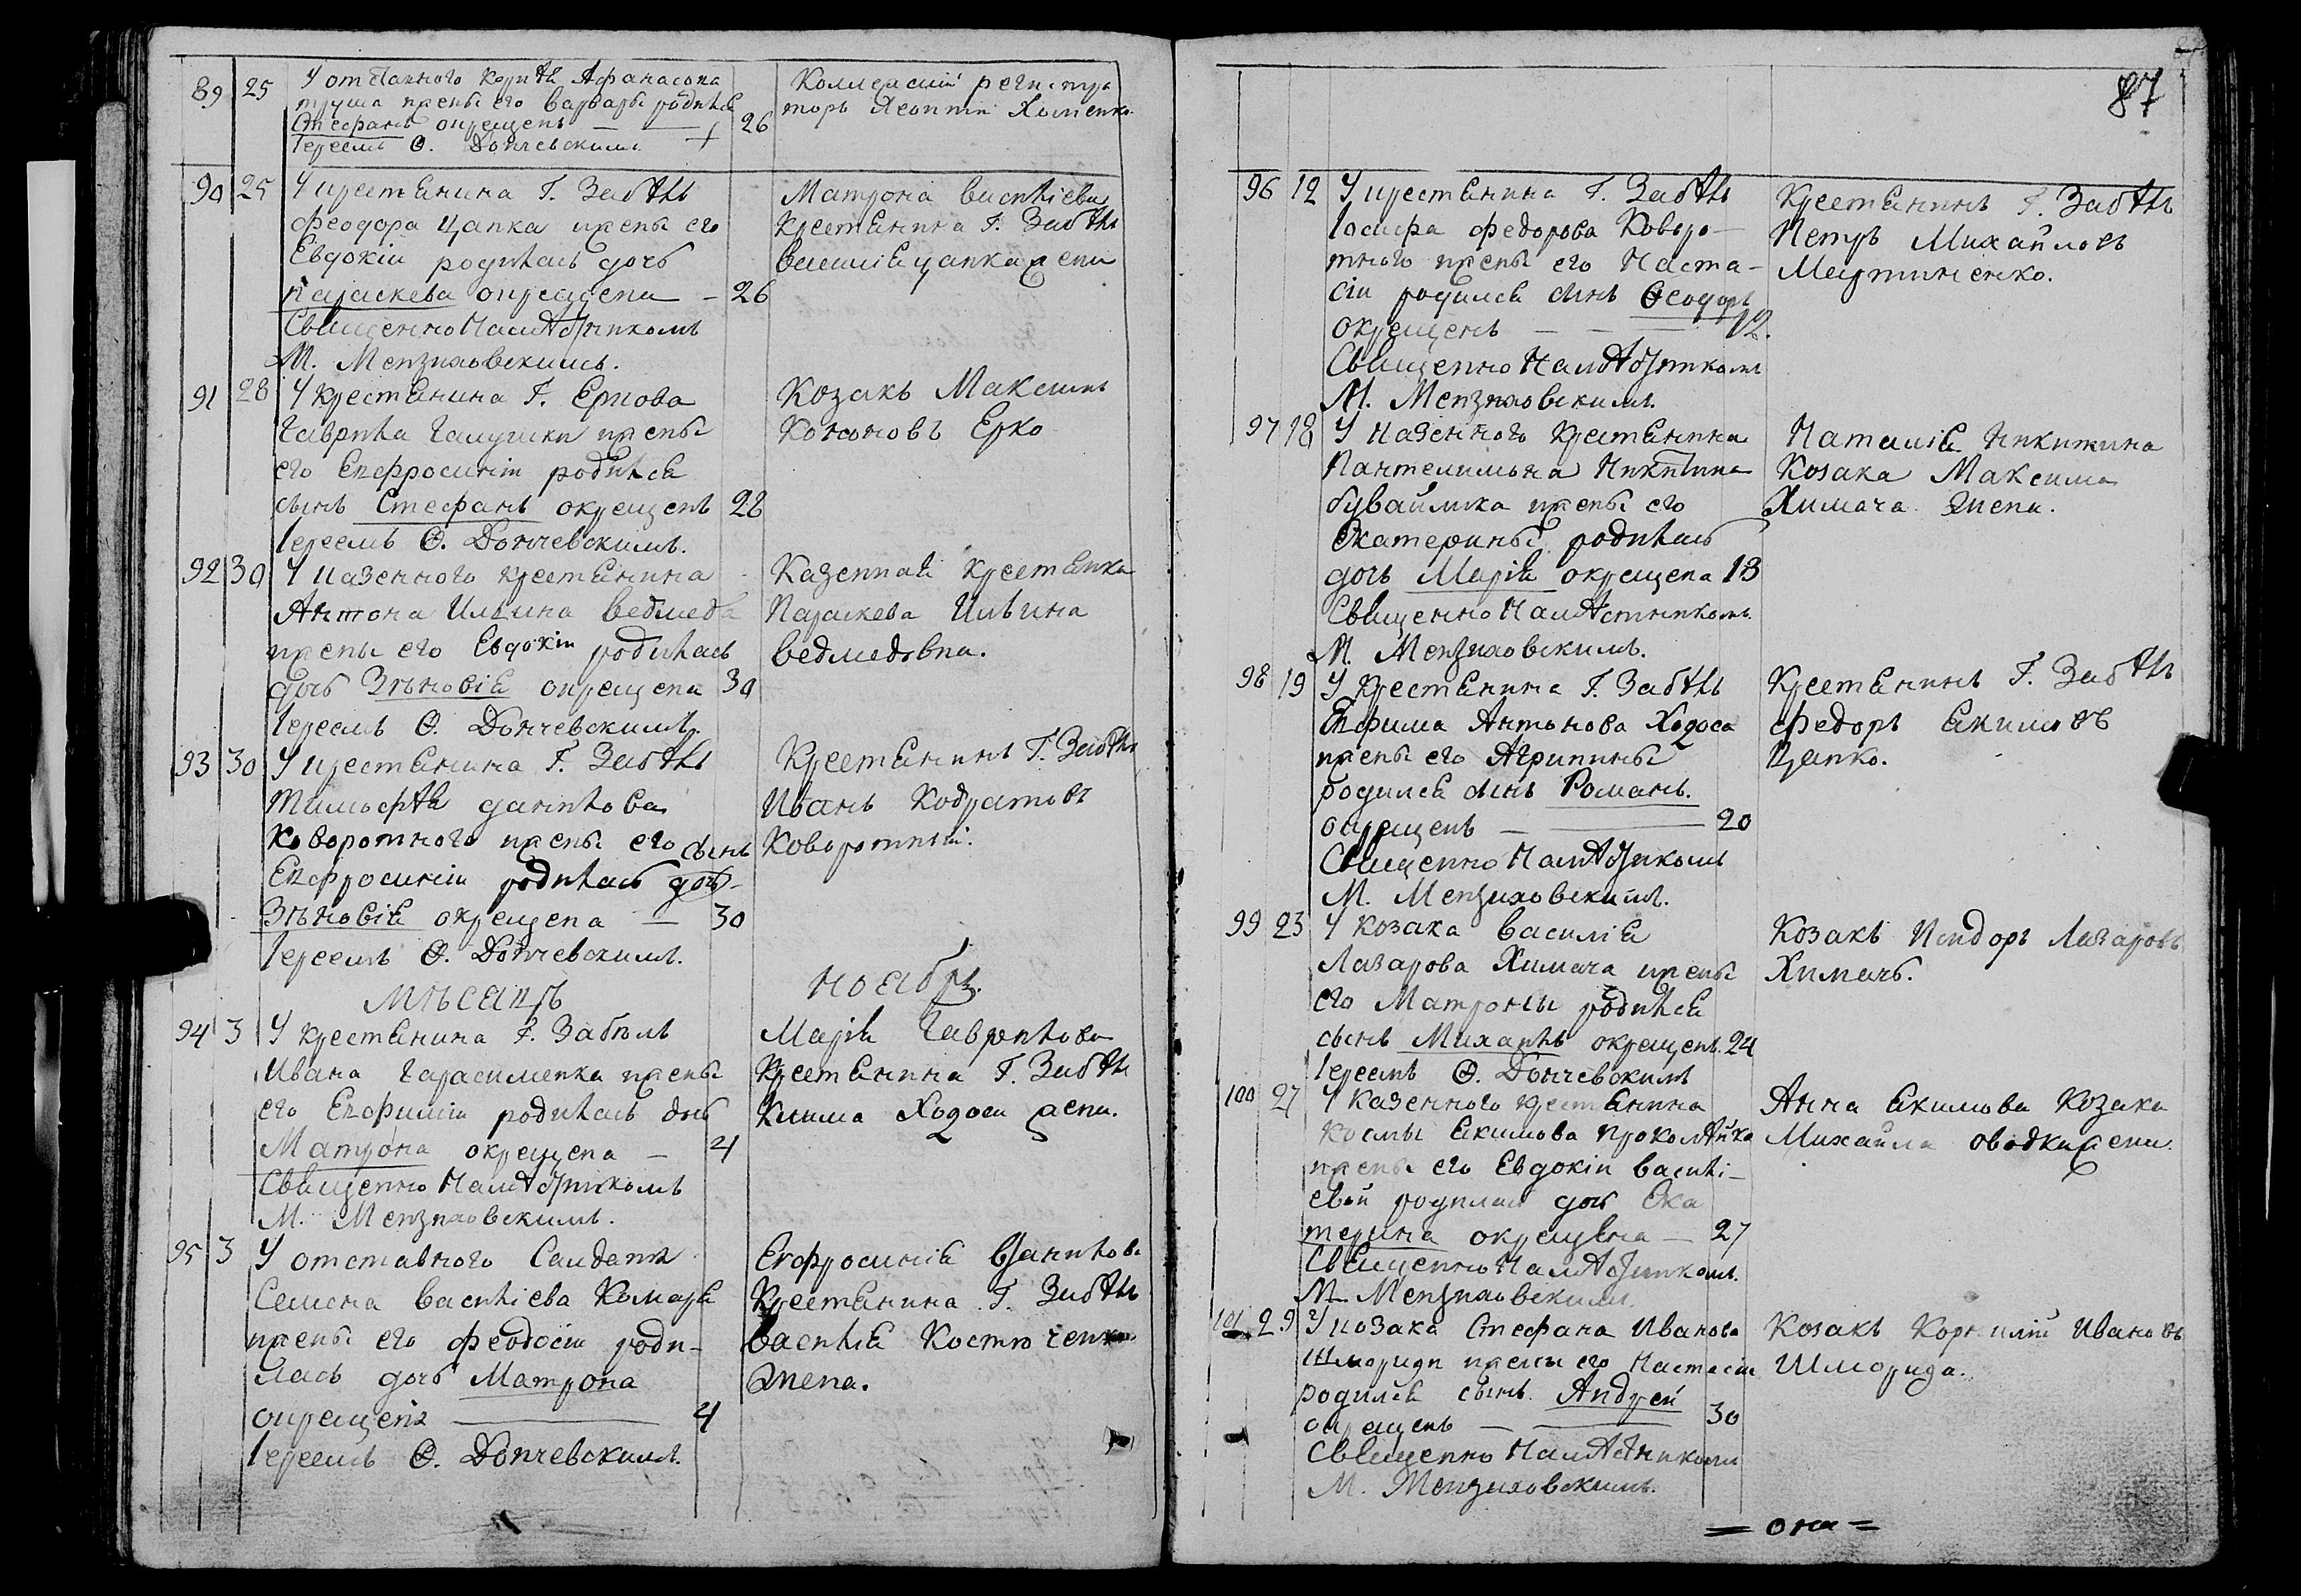 89 25 У отставного Корнѣ Афанасова
жены его Варвары родился
Стефанъ окрещенъ — 26
Іереемъ Ѳ. Дончевскимъ
Коллежскій регистра
торъ Леонтій Хоменко
90 25 У крестьянина Г. Забѣлы
Феодора Цапка жены его
Евдокіи родилась дочь
Параскева окрещена — 26
Священно Намѣстникомъ
М. Мензиховскимъ.
Матрона Василіева
Крестьянина Г. Забѣлы
Василія Цапка жена
91 28 У крестьянина Г.
Гаврила Галушки жены
его Евфросиніи родился
сынъ Стефанъ окрещенъ 28
Іереемъ Ѳ. Дончевскимъ.
Козакъ Максимъ
Кононовъ Ерко
92 30 У казенного крестьянина
Антона Ильина Ведмедя
жены его Евдокіи родилась
дочь Зѣновія окрещена 30
Іереемъ Ѳ. Дончевскимъ.
Казенная крестьянка
Параскева Ильина
Ведмедовна.
93 30 У крестьянина Г. Забѣлы
Тимофѣя Данилова
Коворотного жены его сынъ
Евфросиніи родилась дочь
Зѣновія окрещена — 30
Іереемъ Ѳ. Дончевскимъ.
Крестьянинъ Г. Забѣлы
Иванъ Кодратовъ
Коворотный.
мѣсяцъ ноябрь.
94 3 У крестьянина Г. Забѣлы
Ивана Гарасименка жены
его Евфиміи родилась дочь
Матрона окрещена — 4
Священно Намѣстникомъ
М. Мензиховскимъ.
Марія Гаврилова
Крестьянина Г. Забѣлы
Климa Ходоса жена.
95 3 У отставного Салдата
Семена Василіева Комаря
жены его Феодосіи роди-
лась дочь Матрона
окрещена — 4
Іереемъ Ѳ. Дончевскимъ.
Евфросинія Данилова
Крестьянина Г. Забѣлы
Василія Костюченка
жена.
87
96 12 У крестьянина Г. Забѣлы
Іосифа Федорова Коворо-
тного жены его Наста-
сіи родился сынъ Ѳеодоръ
окрещенъ — — 12.
Священно Намѣстникомъ
М. Мензиховскимъ.
Крестьянинъ Г. Забѣлы
Петръ Михайловъ
Мартиненко.
97 18 У казенного крестьянина
Пантелимона Никитина
Бувайлика жены его
Екатерины родилась
дочь Марія окрещена 18
Священно Намѣстникомъ
М. Мензиховскимъ.
Наталія Никитина
Козака Максима
Химача жена.
98 19 У крестьянина Г. Забѣлы
Евфима Антонова Ходоса
жены его Агрипины
родился сынъ Романъ.
окрещенъ — 20
Священно Намѣстникомъ
М. Мензиховскимъ.
Крестьянинъ Г. Забѣлы
Федоръ Екимовъ
Цапко.
99 23 У козака Василія
Лазарова Химача жены
его Матроны родился
сынъ Михаилъ окрещенъ. 24
Іереемъ Ѳ. Дончевскимъ
Козакъ Исидоръ Лазаровъ
Химачъ.
100 27 У казенного крестьянина
Космы Екимова
жены его Евдокіи Василі-
евой родилась дочь Ека
терина окрещена — 27
Священно Намѣстникомъ.
М. Мензиховскимъ.
Анна Екимова Козака
Михайла жена.
101 29 У козака Стефана Иванова
Шмориди жены его Настасіи
родился сынъ Андрей
окрещенъ — 30
Священно Намѣстникомъ
М. Мензиховскимъ.
Козакъ Корнилій Ивановъ
Шморида.